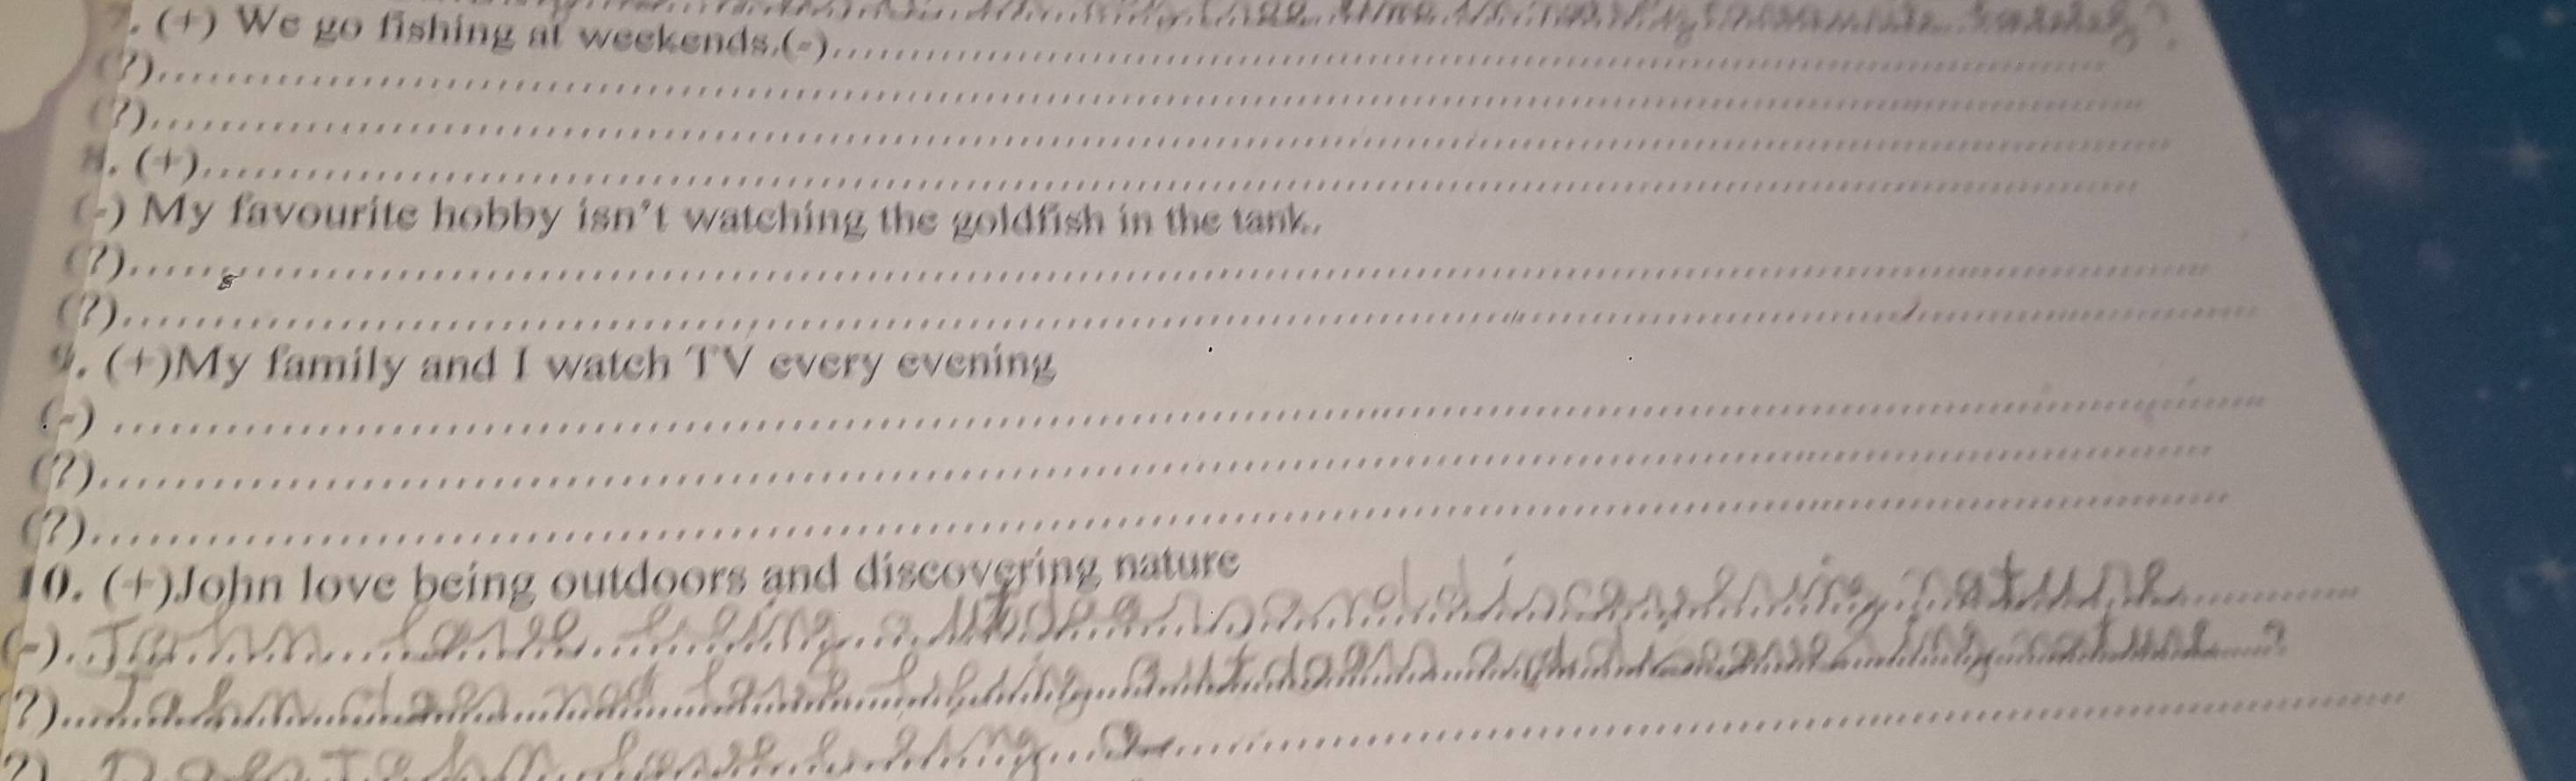 . (+) We go fishing at weekends.(-)
(?)
(?)
8. (+)
(-) My favourite hobby isn't watching the goldfish in the tank.
(?)
(?)
9. (+)My family and I watch TV every evening
(-)
(?)
(?)
10. (+)John love being outdoors and discovering nature
(-) John love being outdoors and discovering nature
(?) John does not love being outdoors and discovering nature ?
?) Does John love being